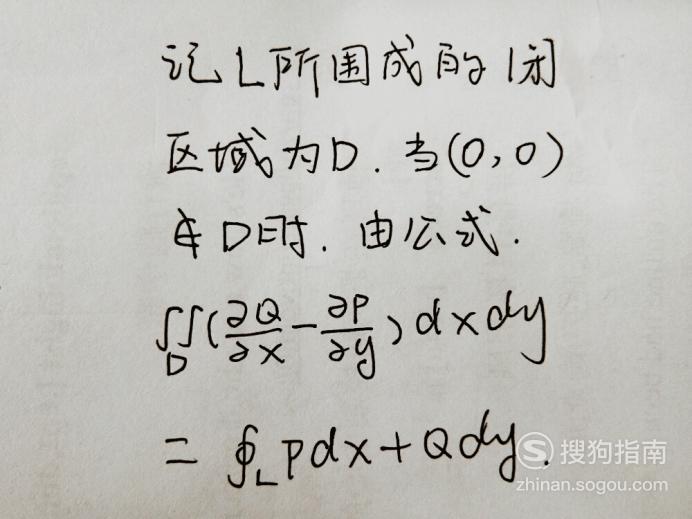 记L所围成的闭
区域为D.当(0,0)
∉D时.由公式.
∬_D(∂Q/∂x-∂P/∂y)dxdy
=∮_L Pdx+Qdy.
搜狗指南
zhinan.sogou.com